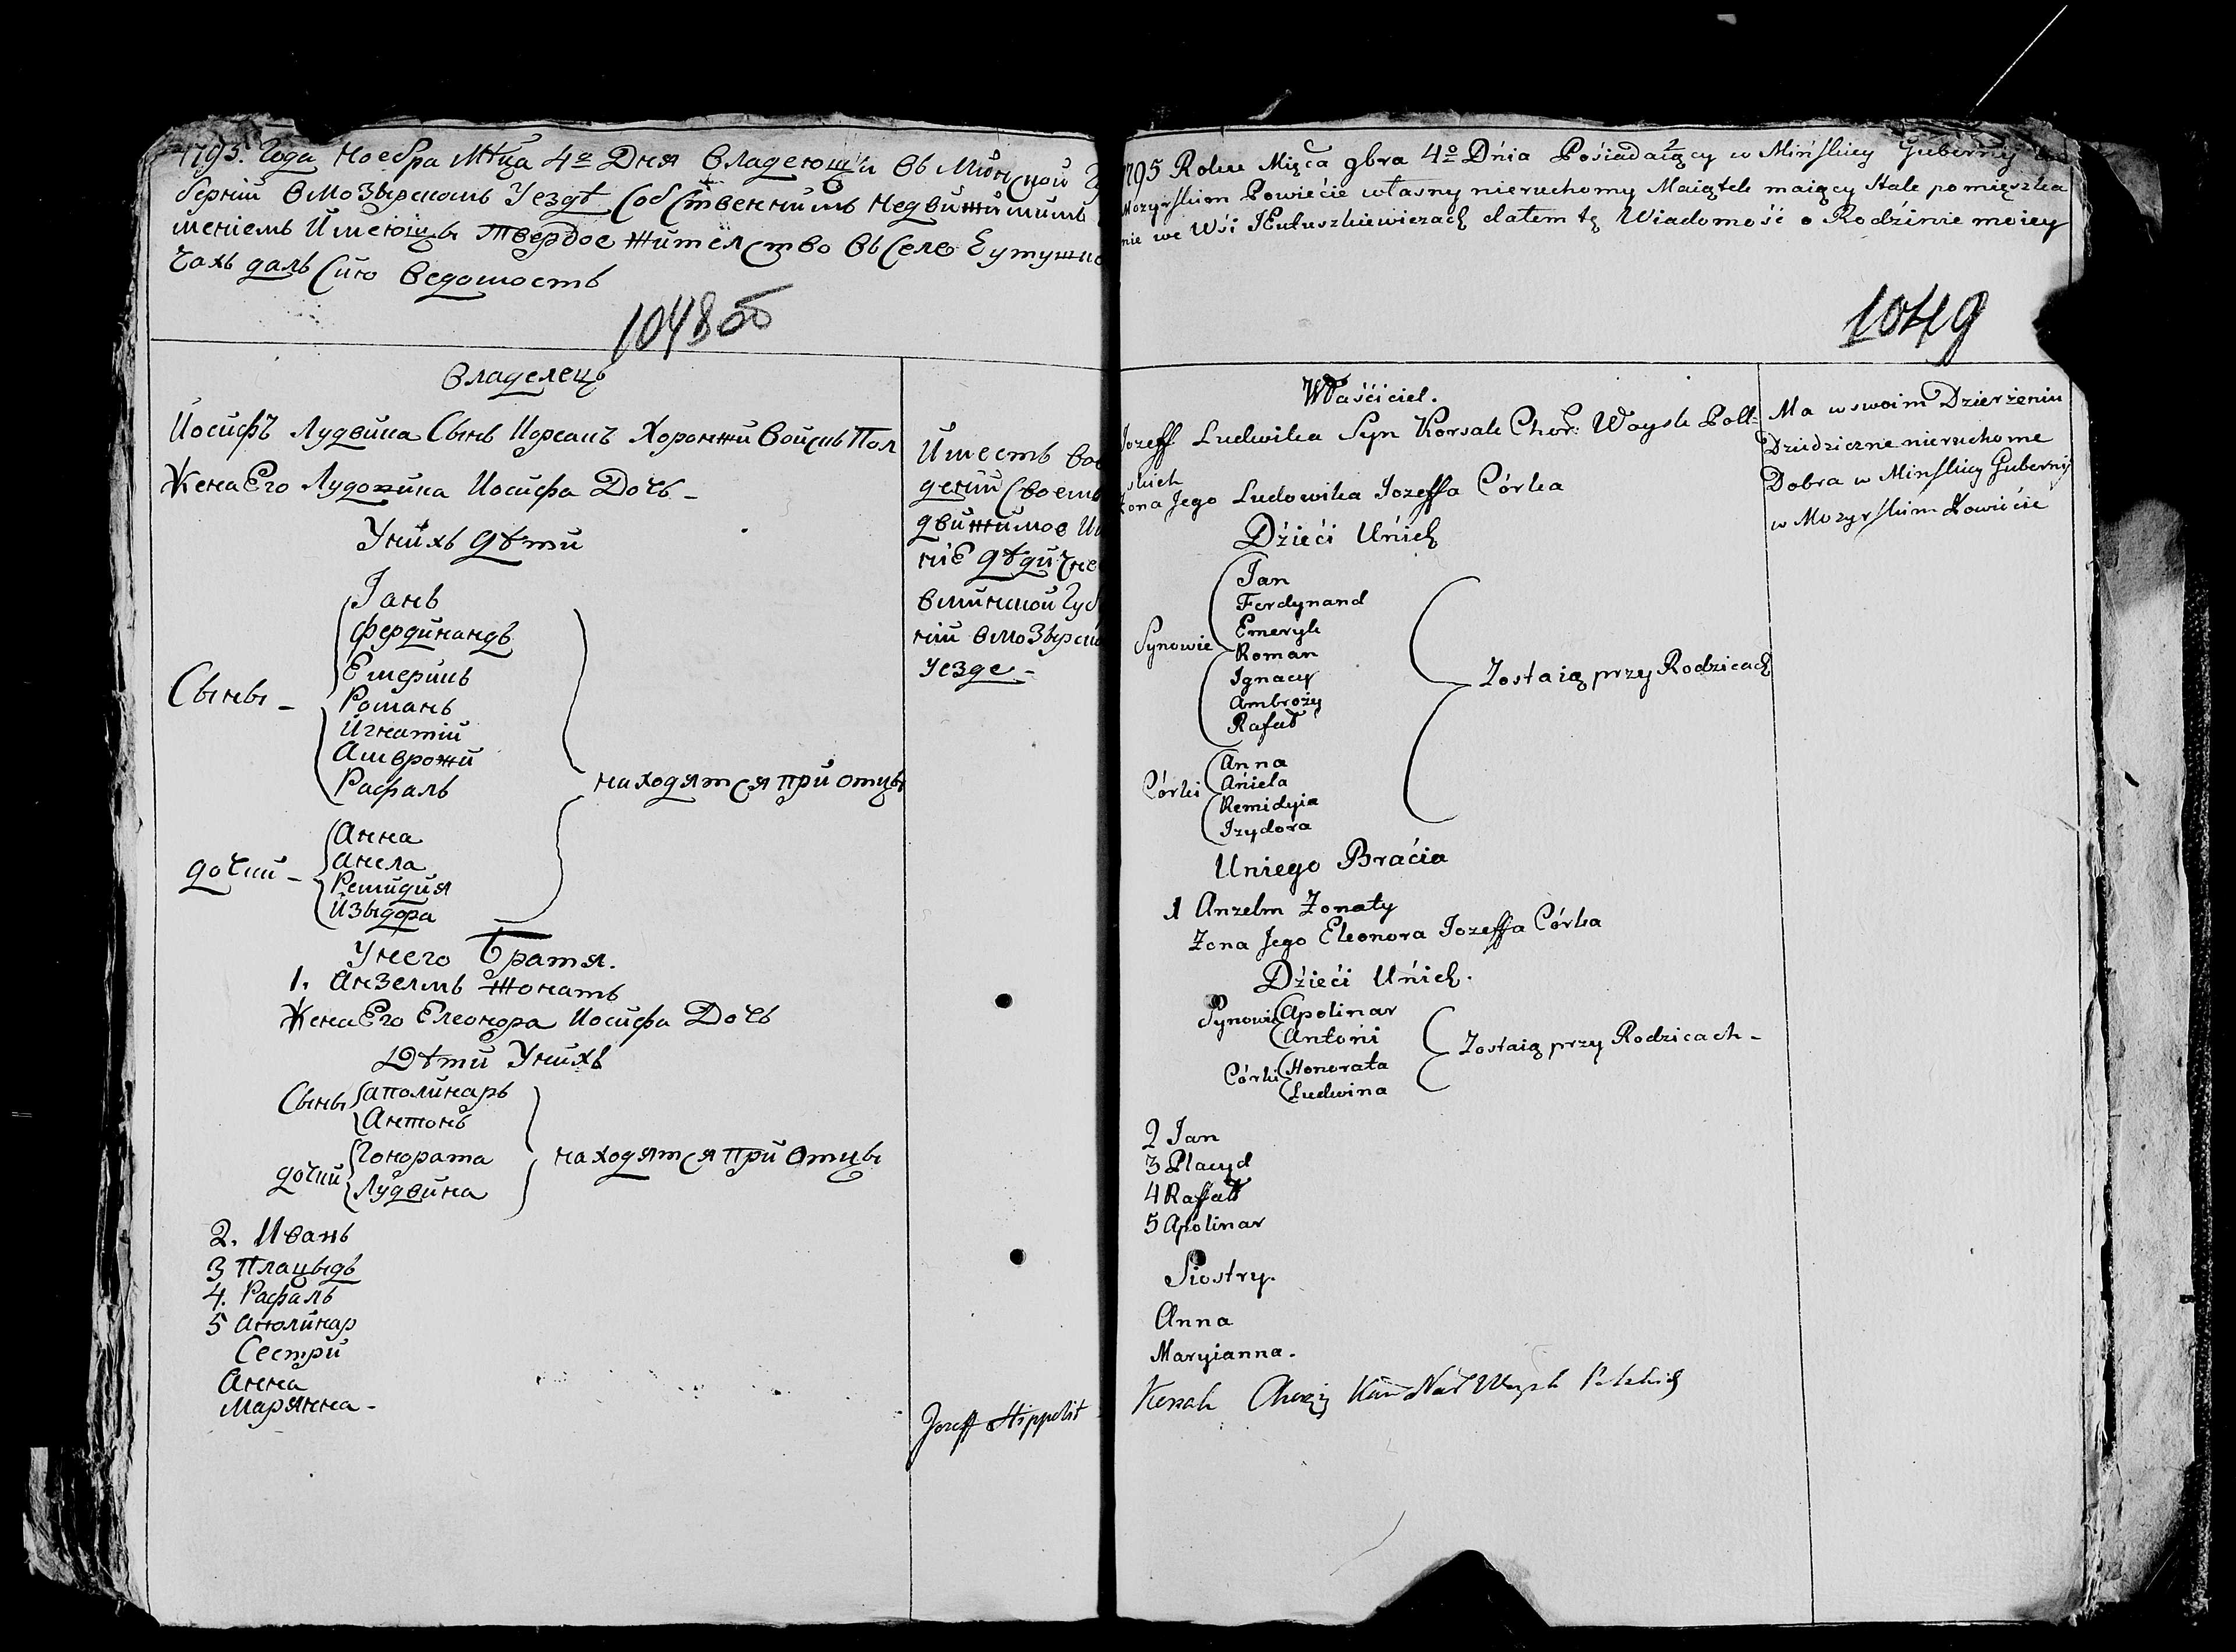 1795. Года Ноебра Мѣца 4º Дня Владеющы въ Минской Гу
берніи вмозырскомъ Уездѣ Собственнимъ недвижимимъ
меніемъ Имеющы твердое жителство въ Селе
чахъ далъ Сию ведомость
1048об
Владелецъ
Иосифъ Лудвика Сынъ Корсакъ Хоронжи Войскъ Пол
Жена Его Лудовика Иосифа Дочь -
Унихъ дѣти
Сыны -
Іанъ
Фердинандъ
Емерикъ
Романъ
Игнатій
Амврожи
Рафалъ
находятся при отцы
дочки -
Анна
Анела
Ремидия
Изыдора
Унего Братя.
1. Анзелмъ Жонатъ
Жена Его Елеонора Иосифа Дочь
Дѣти Унихъ
Сыны
Аполинаръ
Антонъ
дочки
Гонората
Лудвина
находятся при отцы
2. Иванъ
3 Плацыдъ
4. Рафалъ
5 Аполинар
Сестри
Анна
Марянна -
Имеетъ вов
дении Своемъ
движимое Им
ніе дѣдичне
вминской Губ
ніи вмозырско
уезде -
Jozeff Hippolit
1795 Roku Mięca 9bra 4º Dńia Pośiadaiący w Mińskiey Guberniy
Mozyrskim Powiećie własny nieruchomy Maiątek maiący Stałe pomięszka
nie we Wśi Jełuszkiewiczach dałem tę Wiadomość o Rodźinie moiey
1049
Właśćiciel.
Jozeff Ludwika Syn Korsak Chor: Woysk Poll-
skich
Zona Jego Ludowika Jozeffa Córka
Dźieći Uńich
Synowie
Jan
Ferdynand
Emeryk
Roman
Ignacy
Ambroży
Rafał
Córki
Anna
Ańiela
Remidyia
Izydora
Zostaią przy Rodzicach
Uniego Braćia
1 Anzelm Zonaty
Zona Jego Eleonora Jozeffa Córka
Dźieći Uńich.
Synowie
Apolinar
Antońi
Córki
Honorata
Ludwina
Zostaią przy Rodzicach -
2 Jan
3 Placyd
4 Raffał
5 Apolinar
Siostry.
Anna
Maryianna.
Korsak Chorąży Woysk Polskich
Ma w swoim Dzierżeniu
Dziedziczne nieruchome
Dobra w Minskiey Guberniy
w Mozyrskim Powiećie